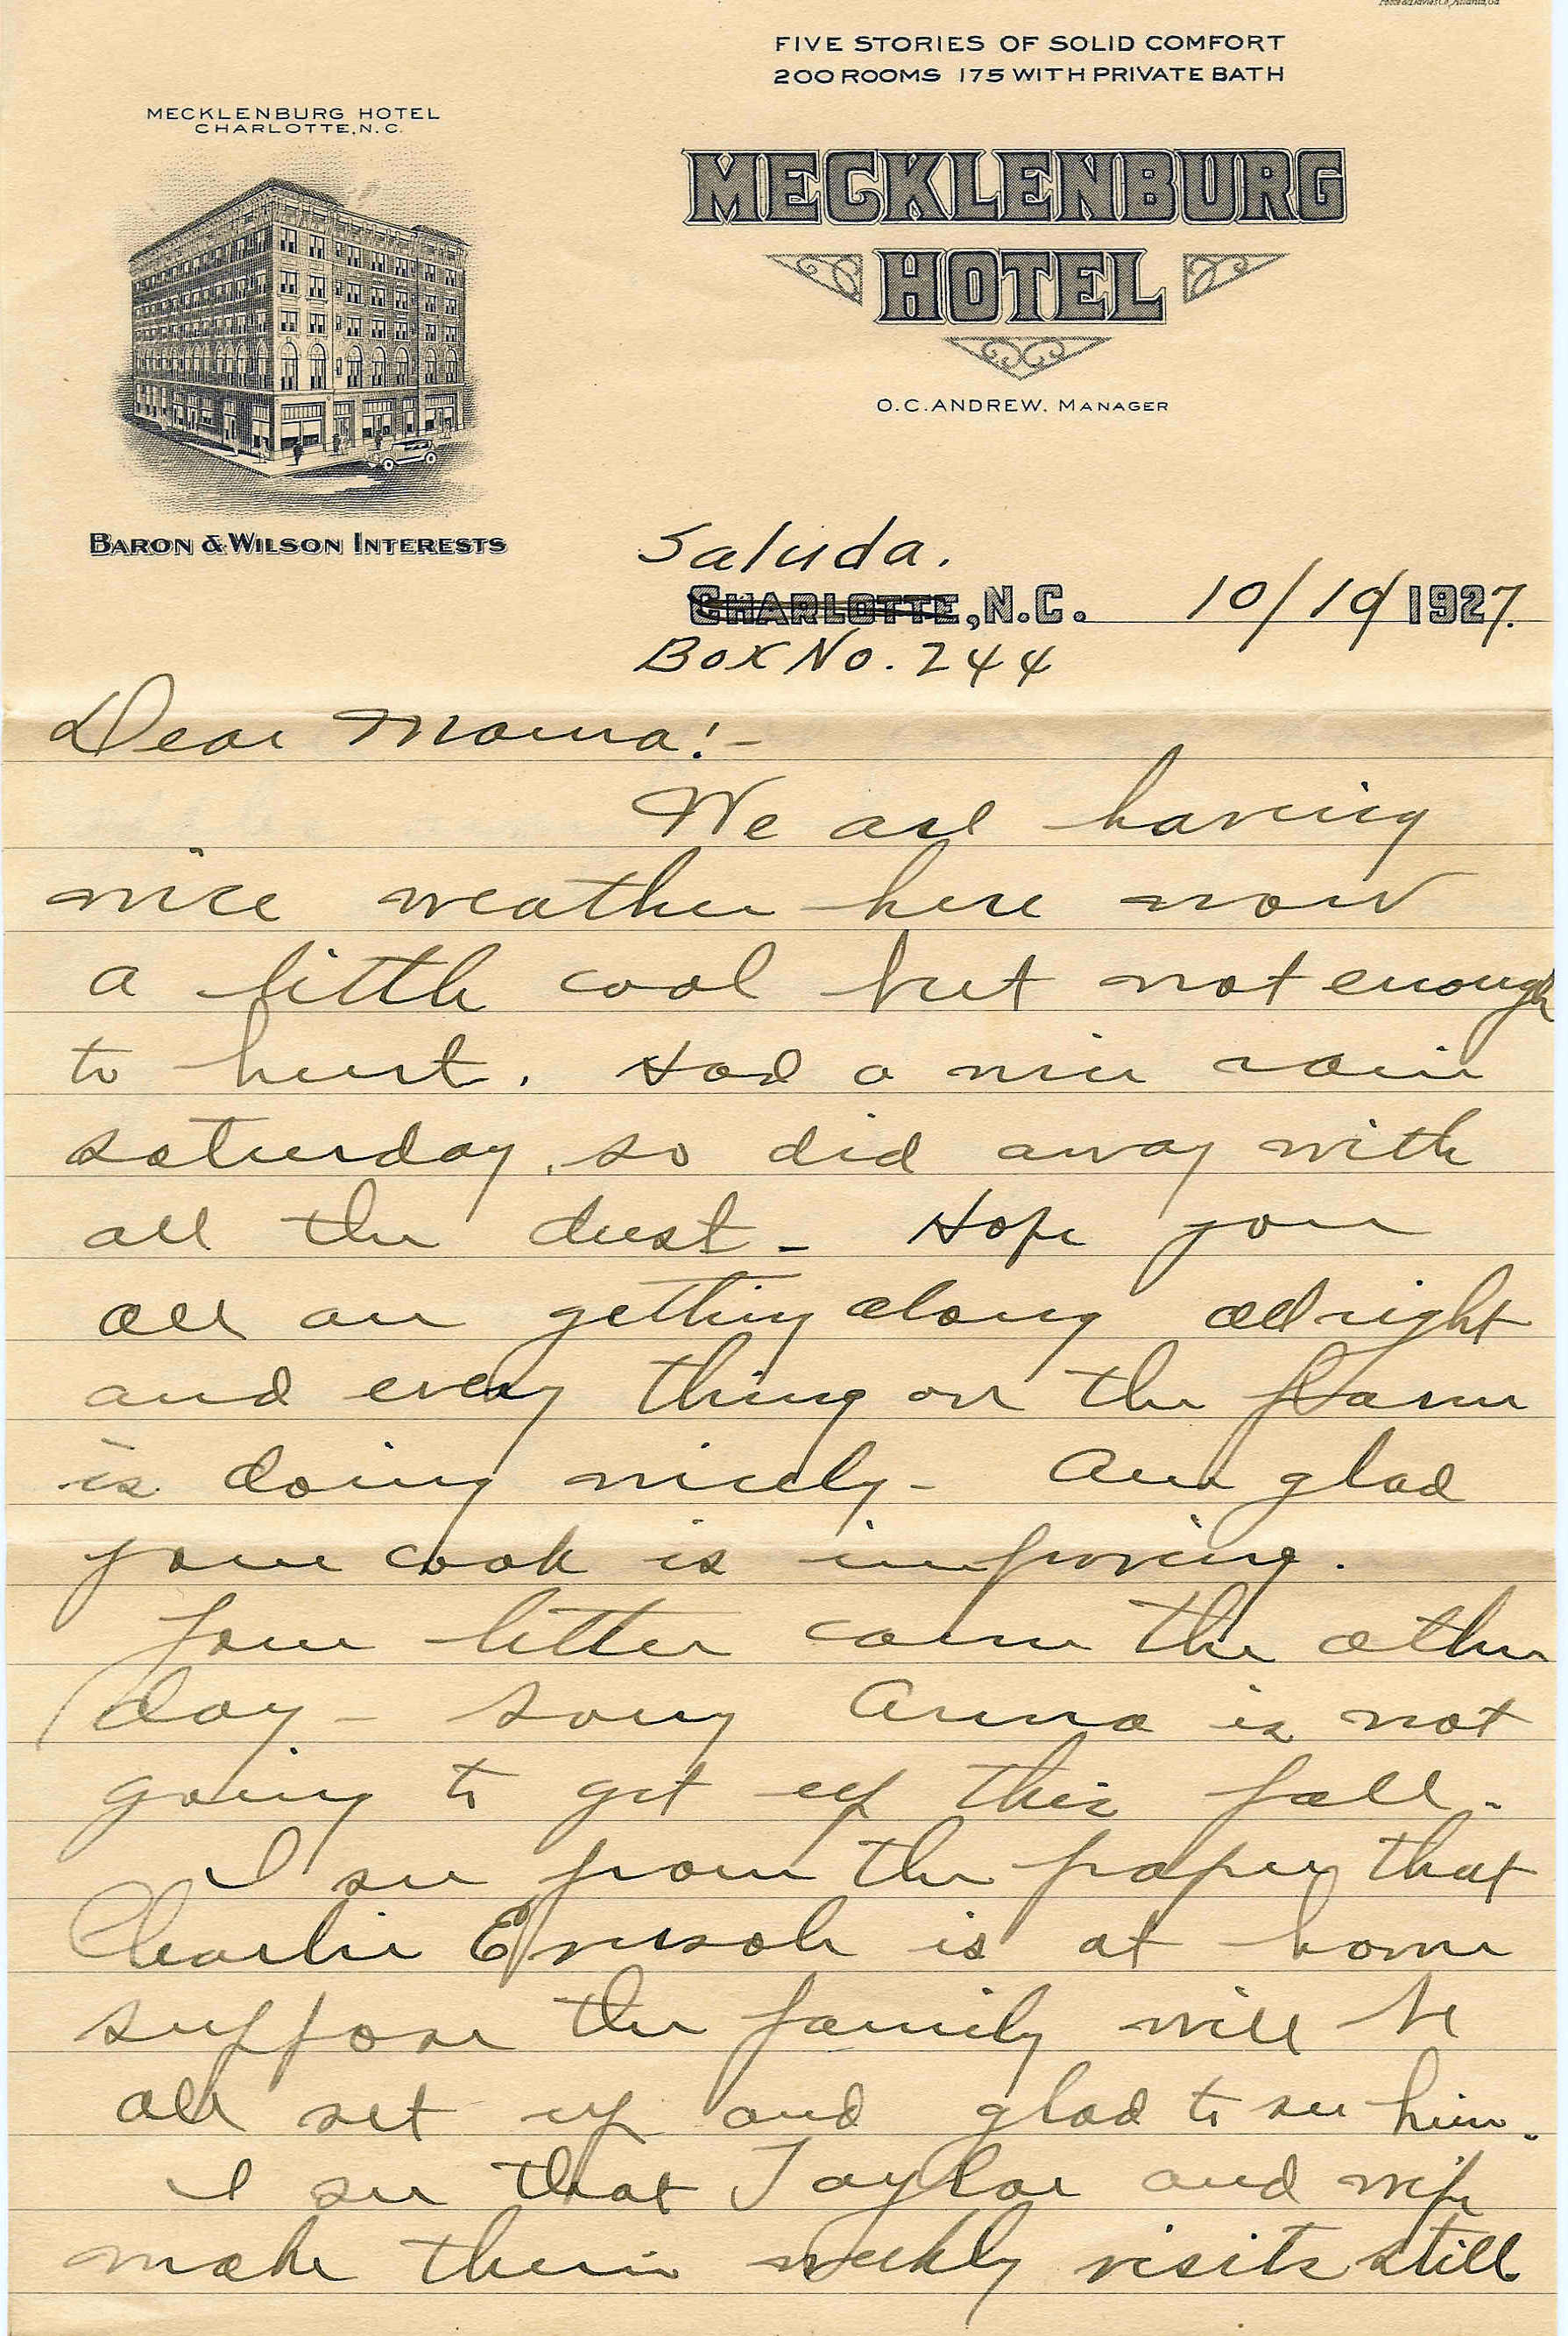 FIVE STORIES OF SOLID COMFORT
200 ROOMS 175 WITH PRIVATE BATH
MECKLENBURG HOTEL
CHARLOTTE, N.C.
MECKLENBURG
HOTEL
O.C. ANDREW. MANAGER
BARON & WILSON INTERESTS
Saluda.
CHARLOTTE, N.C. 10/10/1927.
Box No. 244
Dear Mama!-
We are having
nice weather here now
a little cool but not enough
to hurt. Had a nice rain
saturday, so did away with
all the dust - Hope you
all are getting along allright
and every thing on the farm
is doing nicely - Am glad
your cook is improving.
Your letter came the other
day - sorry Anna is not
going to get up this fall.
I see from the paper that
Charlie is at home
suppose the family will be
all set up and glad to see him.
I see that Taylor and wife
make their weekly visits still